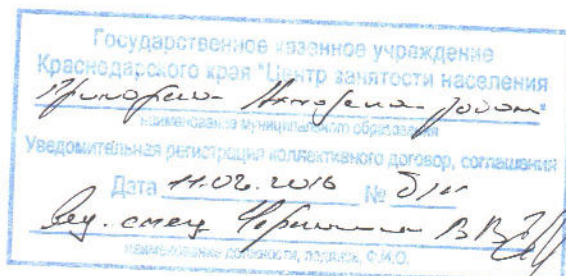 Государственное казенное учреждение
Краснодарского края "Центр занятости населения
"
наименование муниципального образования
Уведомительная регистрация коллективного договор, соглашения
Дата 11.02.2016 №
Вед. спец В В
наименование должности, подпись, Ф.И.О.